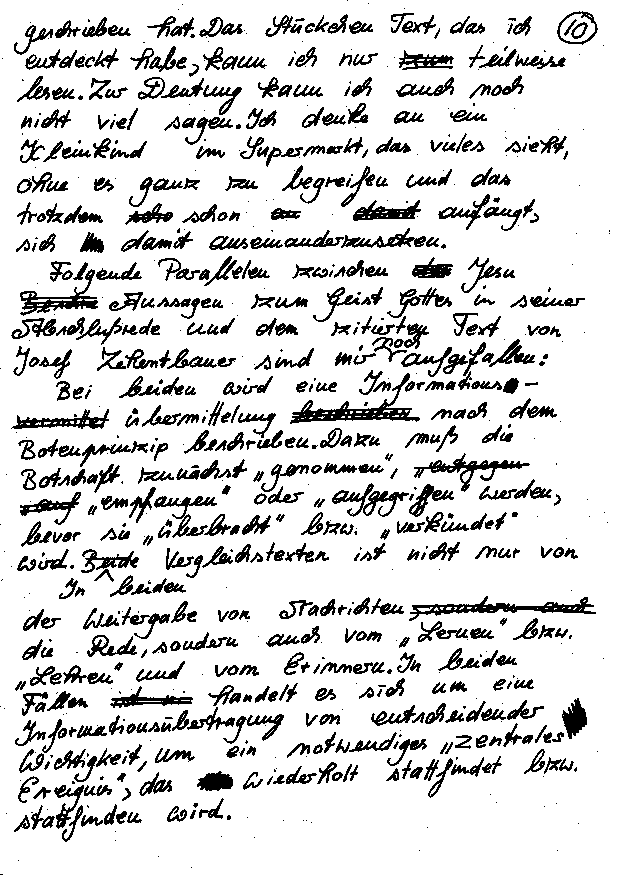 geschrieben hat. Das Stückchen Text, das ich 10
entdeckt habe, kann ich nur zum teilweise
lesen. Zur Deutung kann ich auch noch
nicht viel sagen. Ich denke an ein
Kleinkind im Supermarkt, das vieles sieht,
ohne es ganz zu begreifen und das
trotzdem scho schon damit anfängt,
sich damit auseinanderzusetzen.
Folgende Parallelen zwischen Jesu
Aussagen zum Geist Gottes in seiner
Abschlußrede und dem zitierten Text von
Josef Zehentbauer sind mir noch aufgefallen:
Bei beiden wird eine Informations-
vermittel übermittelung beschrieben nach dem
Botenprinzip beschrieben. Dazu muß die
Botschaft zunächst „genommen", „entgegen-
auf „empfangen" oder „aufgegriffen" werden,
bevor sie „überbracht" bzw. „verkündet"
wird. Beide Vergleichstexten ist nicht nur von
In beiden
der Weitergabe von Nachrichten, sondern auch
die Rede, sondern auch vom „Lernen" bzw.
„Lehren" und vom Erinnern. In beiden
Fällen handelt es sich um eine
Informationsübertragung von entscheidender
Wichtigkeit, um ein notwendiges „zentrales
Ereignis", das wiederholt stattfindet bzw.
stattfinden wird.